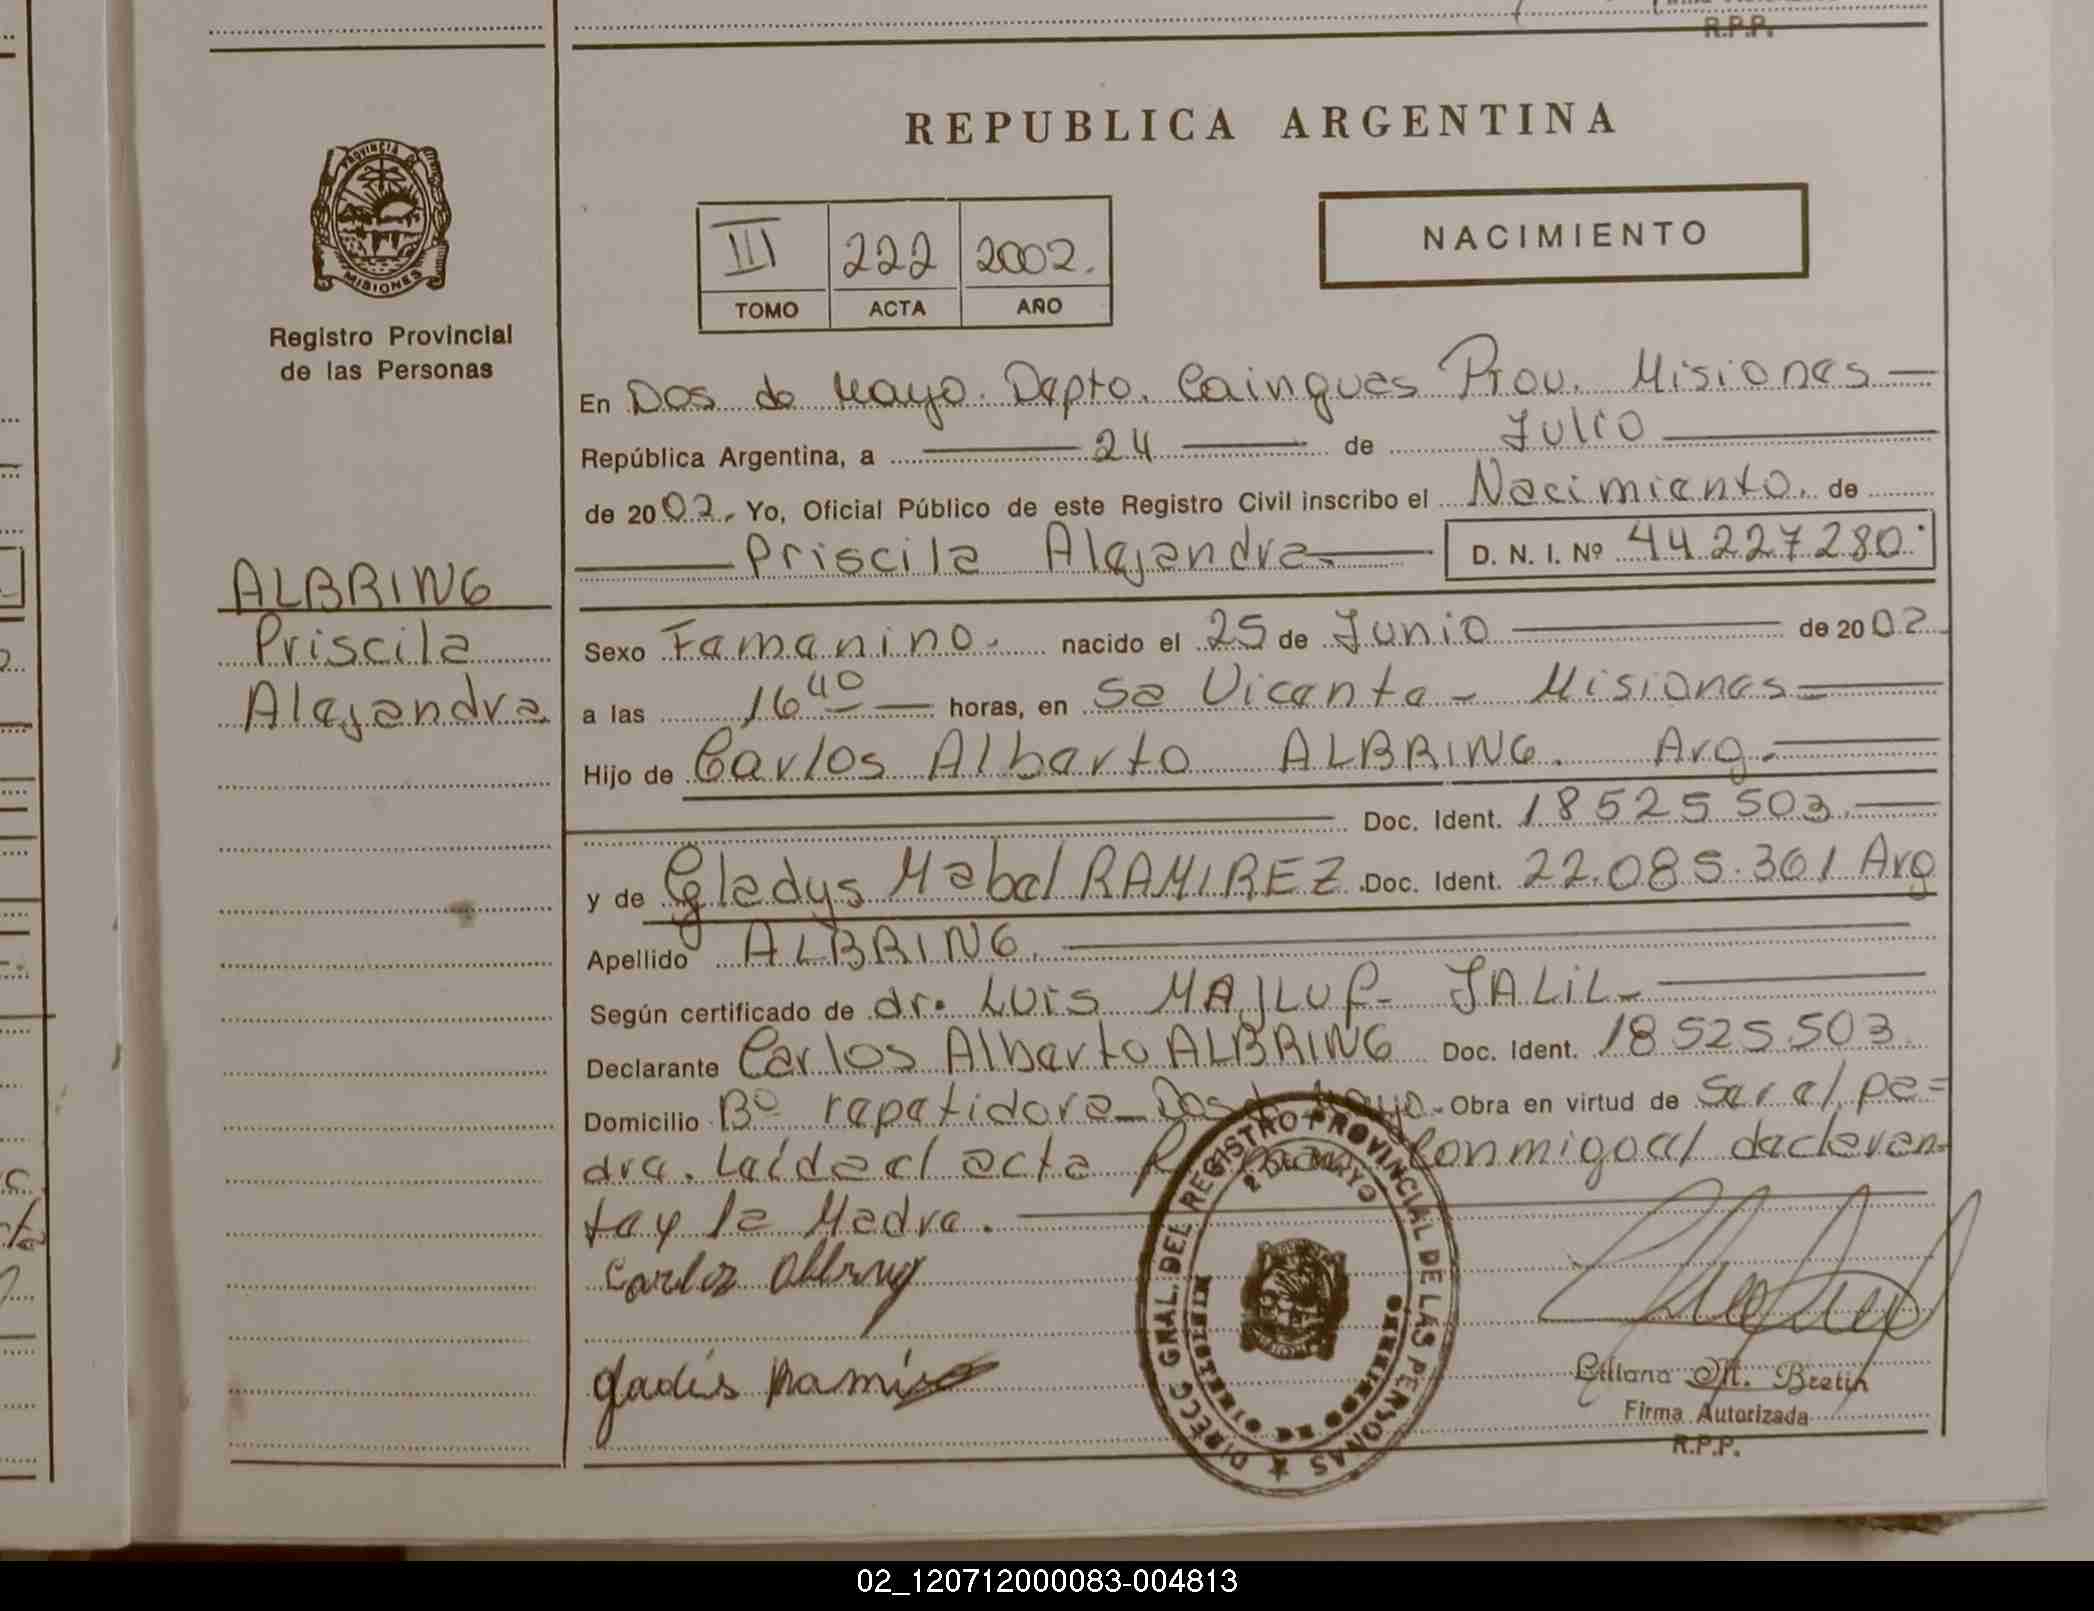 R.P.P.
PROVINCIA DE
MISIONES
Registro Provincial
de las Personas
ALBRING
Priscila
Alejandra
REPUBLICA ARGENTINA
III 222 2002.
TOMO ACTA AÑO
NACIMIENTO
En Dos de Mayo. Depto. Cainguas Prov. Misiones
República Argentina, a 24 de Julio
de 2002. Yo, Oficial Público de este Registro Civil inscribo el Nacimiento. de
Priscila Alejandra D. N. I. Nº 44.227.280.
Sexo Femenino. nacido el 25 de Junio de 2002.
a las 16 40 horas, en Sa Vicente - Misiones
Hijo de Carlos Alberto ALBRING. Arg.
Doc. Ident. 18.525.503.
y de Gladys Mabel RAMIREZ. Doc. Ident. 22.085.361 Arg
Apellido ALBRING.
Según certificado de dr. Luis MAJLUF JALIL
Declarante Carlos Alberto ALBRING Doc. Ident. 18.525.503.
Domicilio Bº repetidora - Dos de Mayo. Obra en virtud de Ser el pa=
dre. Leída el acta Firman Conmigo el declaran-
te y la Madre.
Carlos Albring
gladis Ramirez
DIRECC GRAL. DEL REGISTRO PROVINCIAL DE LAS PERSONAS
2 DE MAYO
Liliana M. Bretin
Firma Autorizada
R.P.P.
02_120712000083-004813